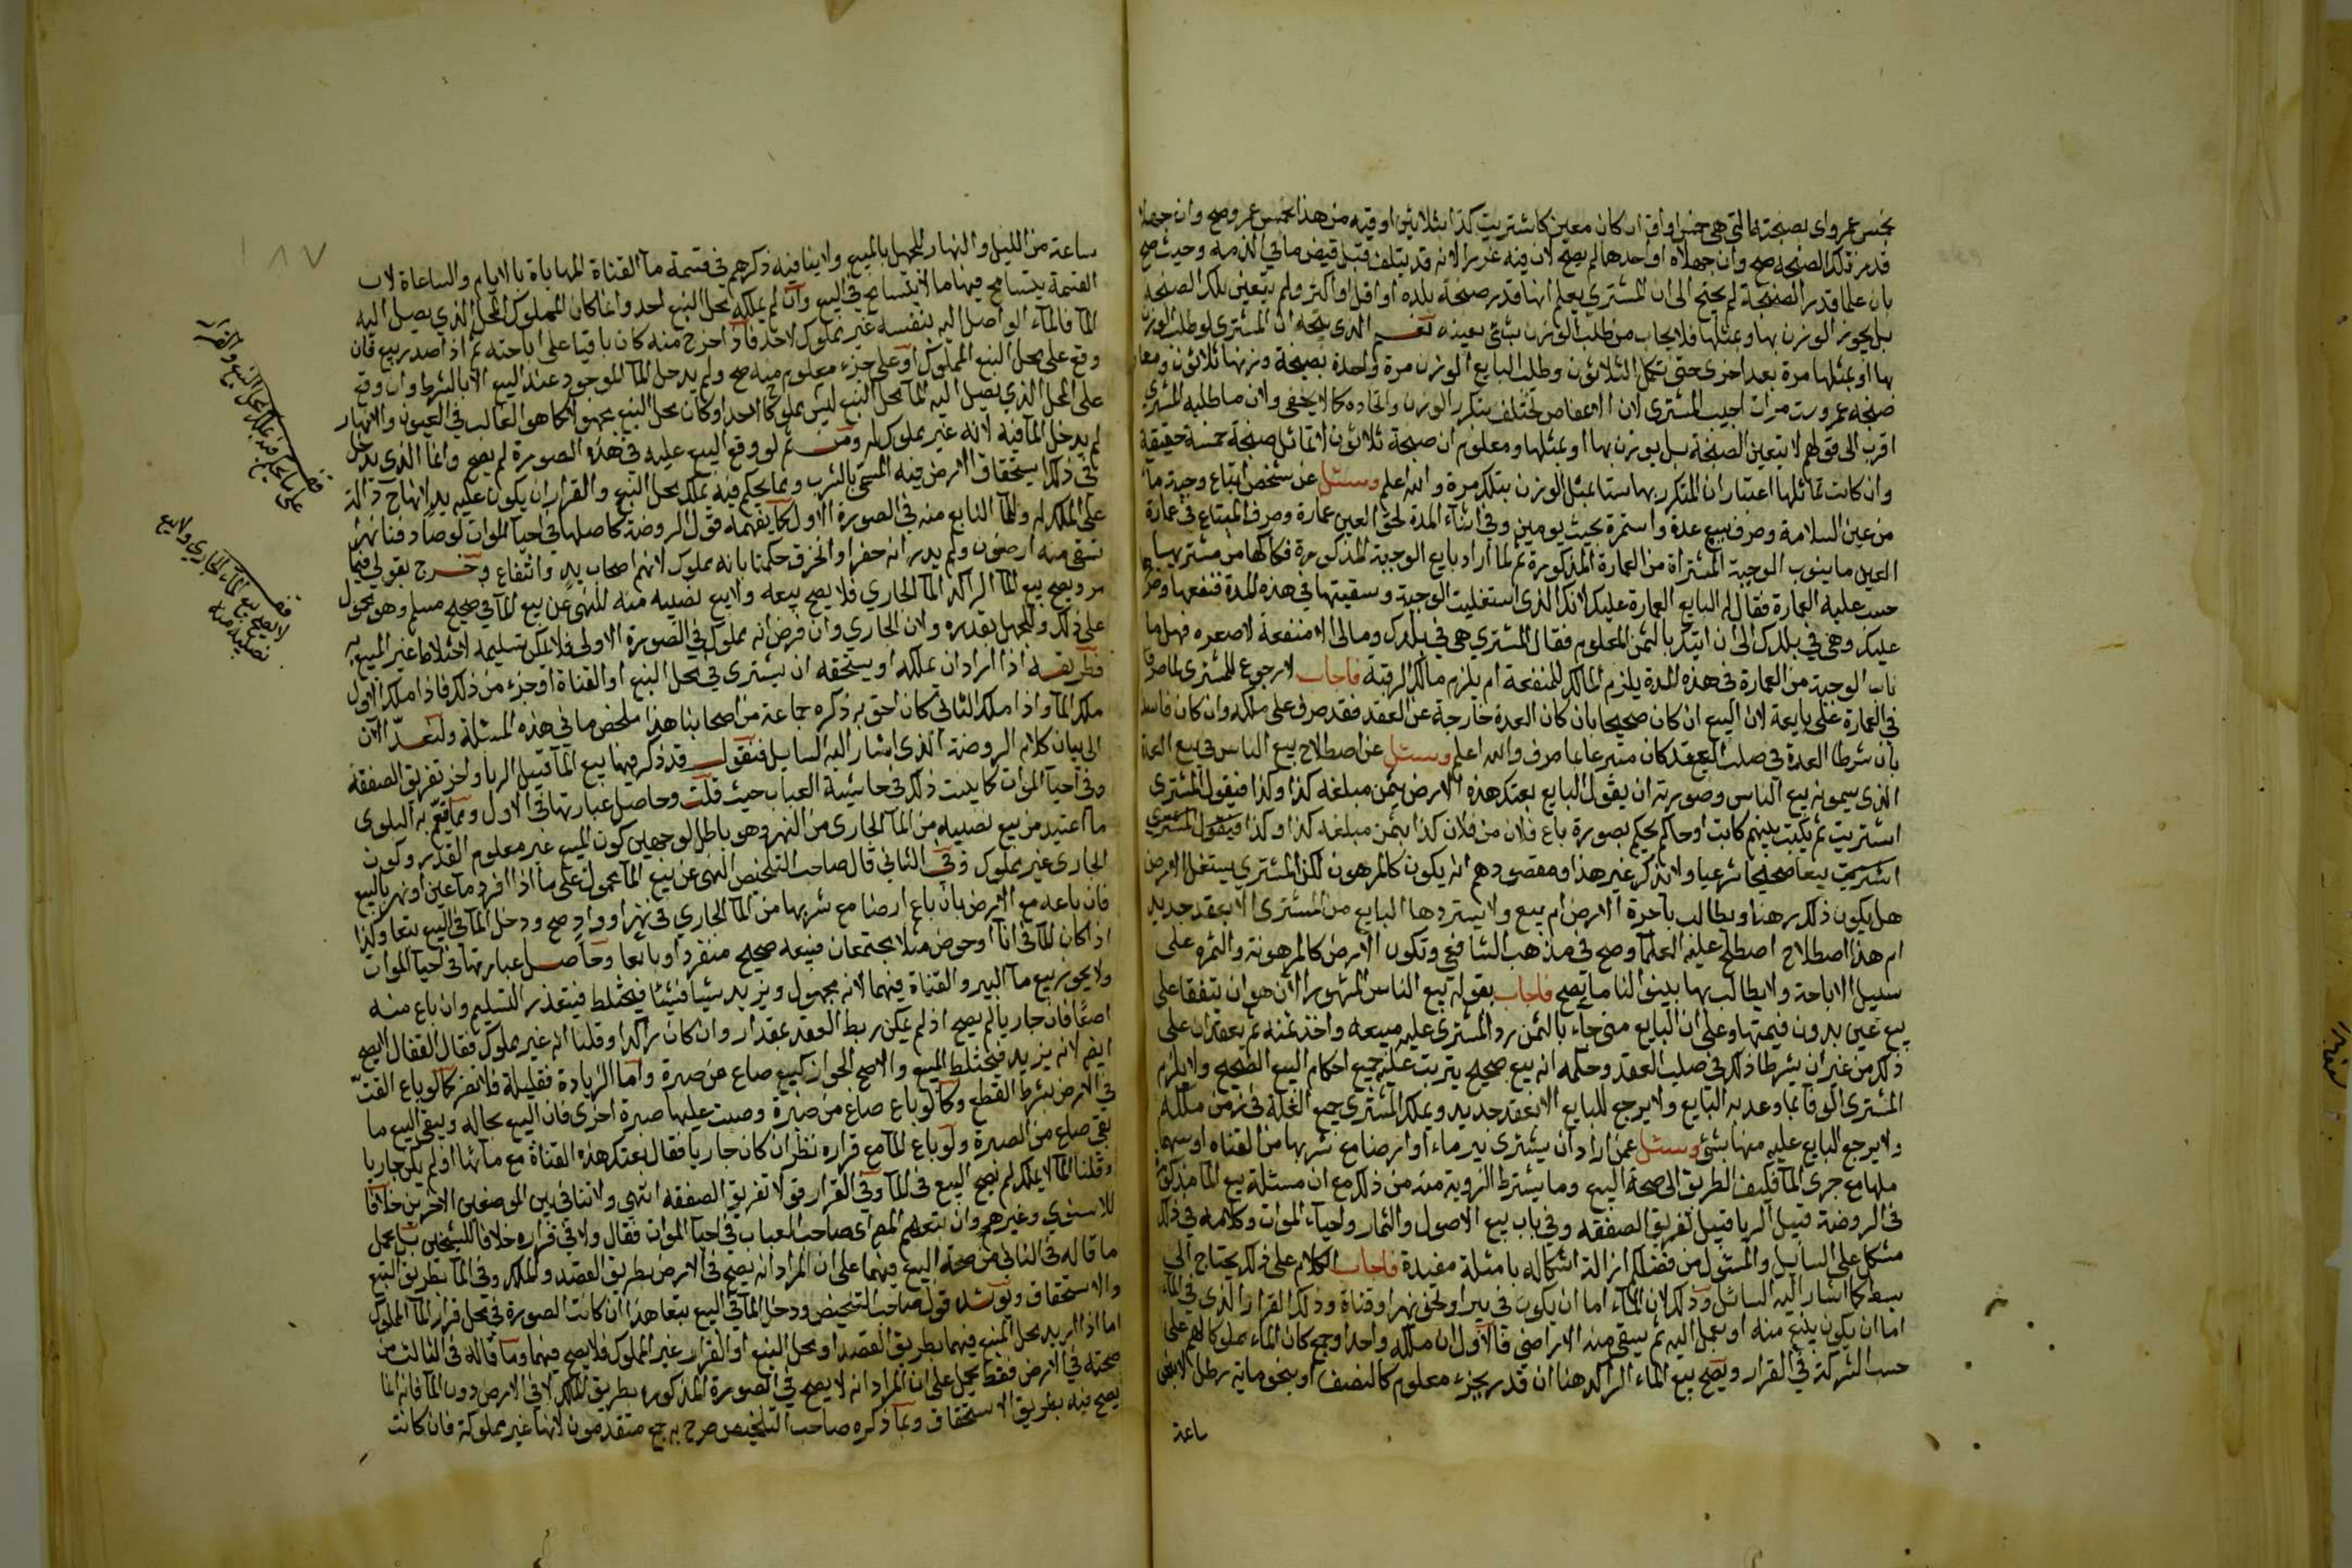 بخمس عمرو اى بصنجته التي هي خمس اواق ان كان معين كاشتريت كذا بثلاثين اوقيه من هذا بخمس عمرو صح وان جهلا
قدر تلك الصنجه صح وان جهلاه او احدهما لم يصح لان فيه غررا لانه قد يتلف قبل قبض ما في الذمه وحيث صح
بان علما قدر الصنجة لم يحتج الى ان المشتري يعلم انها قدر صنجة بلده او اقل او اكثر ولم يتعين تلك الصنجه
بل يجوز الوزن بها وبمثلها فلا يجاب من طلب الوزن بشئ بعينه نعم الذي يتجه ان المشتري لو طلب الوزن
بها او بمثلها مرة بعد اخرى حتى تكمل الثلاثون وطلب البايع الوزن مرة واحدة بصنجة وزنها ثلاثون ومعا
صنجه عمرو ست مرات اجيب المشتري لان الاغراض تختلف بتكرر الوزن واتحاده كما لا يخفى ولان ما طلبه المشتري
اقرب الى قولهم لا يتعين الصنجة بل يوزن بها او بمثلها ومعلوم ان صنجة ثلاثون لا تماثل صنجة خمسة حقيقة
وان كانت تماثلها اعتبار ان المتكرر بها ستا بمثل الوزن بتلك مرة والله اعلم وسئل عن شخص ابتاع وجبة ما
من عين السلامة وصرف بيع عدة واستمرة بحيث يومين وفي اثناء المدة لحق العين عمارة وصرف المبتاع في عمارة
العين ما ينوب الوجبة المشتراة من العمارة المذكورة ثم لما اراد بايع الوجبة المذكورة فكاكها من مشتريها
حسب عليه العمارة فقال له البايع العمارة عليك لانك الذي استغليت الوجبة وسقيتها في هذه المدة فنفعها وضر
عليك وهي في بلدك الى ان اتيك بالثمن المعلوم فقال المشتري هي في بلدك ومالى الا منفعة لا صعره فهل ما
ناب الوجبة من العمارة في هذه المدة يلزم المالك للمنفعة ام يلزم مالك الرقبة فاجاب لا رجوع للمشتري بما صرف
في العمارة على بايعة لان البيع ان كان صحيحا بان كان العدة خارجة عن العقد فقد صرف على ملكه وان كان فاسد
بان شرط العدة في صلب العقد كان متبرعا بما صرف والله اعلم وسئل عن اصطلاح بيع الناس في بيع العدة
الذي يسمونه بيع الناس وصورته ان يقول البايع بعتك هذه الارض بثمن مبلغه كذا وكذا فيقول المشتري
اشتريت ثم يكتب بينهم كاتب او حاكم يحكم بصورة باع فلان من فلان كذا بثمن مبلغه كذا وكذا فيقول المشتري
اشتريت بيعا صحيحا شرعيا ولا يذكر غير هذا ومقصودهم انه يكون كالمرهون لكن المشتري يستغل الارض
هل يكون ذلك رهنا ويطالب باجرة الارض ام بيع ولا يستردها البايع من المشترى الا بعقد جديد
ام هذا اصطلاح اصطلح عليه العلما وصح في مذهب الشافعي وتكون الارض كالمرهونة والثمره على
سبيل الاباحة ولا يطالب بها بينوا لنا ما يصح فاجاب بقوله بيع الناس المشهور الآن هو ان يتفقا على
بيع عين بدون قيمتها وعلى ان البايع متى جاء بالثمن رد المشتري عليه مبيعه واخذ ثمنه ثم يعقدان على
ذلك من غير ان يشرطا ذلك في صلب العقد وحكمه انه بيع صحيح يترتب عليه جميع احكام البيع الصحيح ولا يلزم
المشتري الوفا بما وعد به البايع ولا يرجع للبايع الا بعقد جديد ويملك المشتري جميع الغلة في زمن ملكه
ولا يرجع البايع عليه منها بشئ وسئل عمن اراد ان يشترى بير ماء او ارضا مع شربها من القناه او سهما
ملها مع جرى الما فكيف الطريق الى صحة البيع وما يشترط الرويه منه من ذلك مع ان مسئلة بيع الما مذكورة
في الروضة قبيل الربا قبيل تفريق الصفقه وفي باب بيع الاصول والثمار واحياء الموات وكلامه في ذلك
مشكل على السايل والمسئول من فضلكم ازالة اشكاله بامثلة مفيدة فاجاب الكلام على ذلك يحتاج الى
بسط كما اشار اليه السائل وذلك لان الماء اما ان يكون في بير او نحو نهر او قناة وذلك القرار الذي في الماء
اما ان يكون ينبع منه او يصل اليه ثم يسقى منه الاراضي فالاول ان ملكه واحد او جمع كان الماء مملوكا لهم على
حسب الشركة في القرار ويصح بيع الماء الراكد هنا ان قدر بجزء معلوم كالنصف او بنحو ماية رطل لا بنحو
ساعة
١٨٧
ساعة من الليل والنهار للجهل بالمبيع ولا ينافيه ذكرهم في قسمة ما القناة المهاياة بالايام والساعاة لان
القسمة يتسامح فيها ما لا يتسامح في البيع وان لم يملك محل النبع احد وانما كان المملوك المحل الذي يصل اليه
الما فالماء الواصل اليه بنفسه غير مملوك لاحد فاذا خرج منه كان باقيا على اباحته ثم اذا صدر بيع فان
وقع على محل النبع المملوك او على جزء معلوم منه صح ولم يدخل الما الموجود عند البيع الا بالشرط وان وقع
على المحل الذي يصل اليه الما بمحل النبع ليس مملوكا لاحد او كان محل النبع مجهولا كما هو الغالب في العيون والانهار
لم يدخل الما فيه لانه غير مملوك له ومن ثم لو وقع البيع عليه في هذه الصورة لم يصح وانما الذي يدخل
في ذلك استحقاق الارض فيه المسمى بالشرب ومما يحكم فيه بملك محل النبع والقرار ان يكون عليه يد لانها دالة
على الملك له والما النابع منه في الصورة الاولى كما يفهمه قول الروضة كاصلها في احيا الموات لو صادفنا نهرا
تسقى منه ارضون ولم يدر انه حفر او انخرق حكمنا بانه مملوك لانهم اصحاب يد وانتفاع وخرج بقولي فيما
مر ويصح بيع الما الراكد الما الجاري فلا يصح بيعه ولا بيع نصيبه منه للنهي عن بيع الما في صحيح مسلم وهو محمول
على ذلك وللجهل بقدره ولان الجاري وان فرض انه مملوك في الصورة الاولى فلا يمكن تسليمه لاختلاط غير المبيع به
فطريقه اذا اراد ان يملكه او يستحقه ان يشترى في محل النبع او القناة او جزء من ذلك فاذا ملك الاول
ملك الما واذا ملك الثاني كان احق به ذكره جماعة من اصحابنا هذا ملخص ما في هذه المسئلة ولنعد الآن
الى بيان كلام الروضة الذي اشار اليه السايل فنقول قد ذكر فيها بيع الما قبيل الربا واخر تفريق الصفقه
وفي احيا الموات كما بينت ذلك في حاشية العباب حيث قلت وحاصل عبارتها في الاول ومما تعم به البلوى
ما اعتيد من بيع نصيبه من الما الجاري من النهر وهو باطل لوجهين كون المبيع غير معلوم القدر وكون
الجاري غير مملوك وفي الثاني قال صاحب التلخيص النهي عن بيع الما محمول على ما اذا افرد ما عين او نهر بالبيع
فان باعه مع الارض بان باع ارضا مع شربها من الما الجاري في نهر او واد صح ودخل الما في البيع تبعا وكذا
اذا كان الما في انا او حوض مثلا مجتمعان فبيعه صحيح منفردا وتابعا وحاصل عبارتها في احيا الموات
ولا يجوز بيع ما البير والقناة فيهما لانه مجهول ويزيد شيا فشيئا فيختلط فيتعذر التسليم وان باع منه
اصعا فان جاريا لم يصح اذ لم يمكن ربط العقد بمقدار وان كان راكدا وقلنا انه غير مملوك فقال القفال لا يصح
ايضا لانه يزيد فيختلط المبيع والاصح الجواز كبيع صاع من صبرة واما الزيادة فقليلة فلا تضر كما لو باع القت
في الارض بشرط القطع وكما لو باع صاع من صبرة وصبت عليها صبرة اخرى فان البيع بحاله ويبقى البيع ما
بقى صاع من الصبرة ولو باع الما مع قراره نظر ان كان جاريا فقال بعتك هذه القناة مع مائها او لم يكن جاريا
وقلنا الما لا يملك لم يصح البيع في الما وفي القرار قولا تفريق الصفقه انتهى ولا تنافي بين الموضعين الاخرين خلافا
للاسنوي وغيرهم وان تبعهم المص اى صاحب العباب في احيا الموات فقال ولا في قراره خلافا للشيخين بل يحمل
ما قاله في الثاني من صحة البيع فيهما على ان المراد انه يصح في الارض بطريق القصد والملك وفي الما بطريق التبع
والاستحقاق ويرشد قول صاحب التلخيص ودخل الما في البيع تبعا هذا ان كانت الصورة في محل قرار الما المملوك
اما اذا اريد محل المنبع فيهما بطريق القصد او محل النبع او القرار غير المملوك فلا يصح فيهما وما قاله في الثالث من
صحته في الارض فقط يحمل على ان المراد انه لا يصح في الصورة المذكورة بطريق الملك الا في الارض دون الما فانه انما
يصح فيه بطريق الاستحقاق وبما ذكره صاحب التلخيص صرح به جمع متقدمون لانها غير مملوكة فان كانت
قف
على ما يحكم فيه بملك محل النبع والقرار
قف
لا يصح بيع الماء الجاري ولا بيع
نصيبه منه